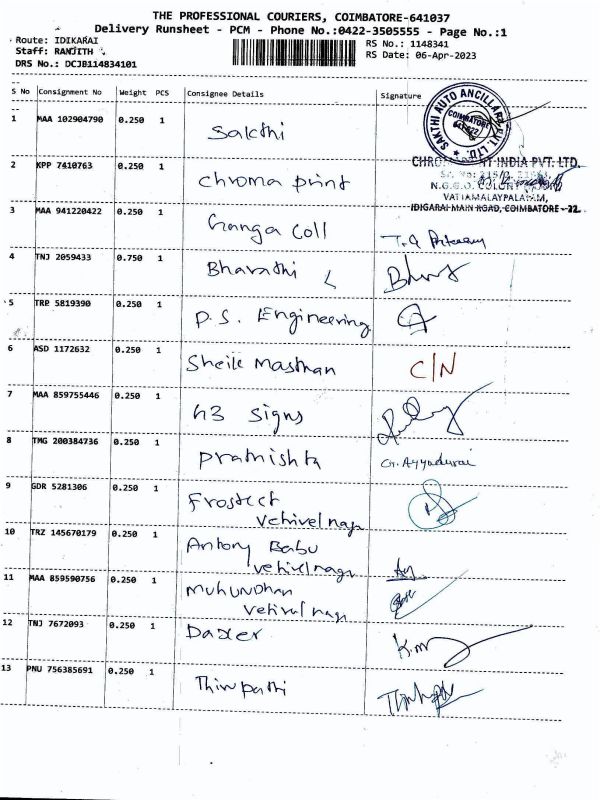 THE PROFESSIONAL COURIERS, COIMBATORE-641037
Delivery Runsheet - PCM - Phone No.:0422-3505555 - Page No.:1
Route: IDIKARAI
Staff: RANJITH
DRS No.: DCJB114834101
RS No.: 1148341
RS Date: 06-Apr-2023
S No Consignment No Weight PCS Consignee Details Signature
1 MAA 102904790 0.250 1 Sakthi
SAKTHI AUTO ANCILLARY PVT. LTD.
COIMBATORE
2 KPP 7410763 0.250 1 chroma print
INDIA PVT. LTD.
N.G.G.O. COLONY
VATTAMALAYPALAYAM,
IDIGARAI MAIN ROAD, COIMBATORE - 22.
3 MAA 941220422 0.250 1 Ganga Coll
4 TNJ 2059433 0.750 1 Bharathi
5 TRP 5819390 0.250 1 P.S. Engineering
6 ASD 1172632 0.250 1 Sheik Masthan C/N
7 MAA 859755446 0.250 1 H3 Signs
8 TMG 200384736 0.250 1 Prathishta G. Ayyadurai
9 GDR 5281306 0.250 1 Frostect
vetrivel naga
10 TRZ 145670179 0.250 1 Antony Babu
vetrivel naga
11 MAA 859590756 0.250 1 Mukundhan
vetrivel naga
12 TNJ 7672093 0.250 1 Daxer K.m
13 PNU 756385691 0.250 1 Thirupathi